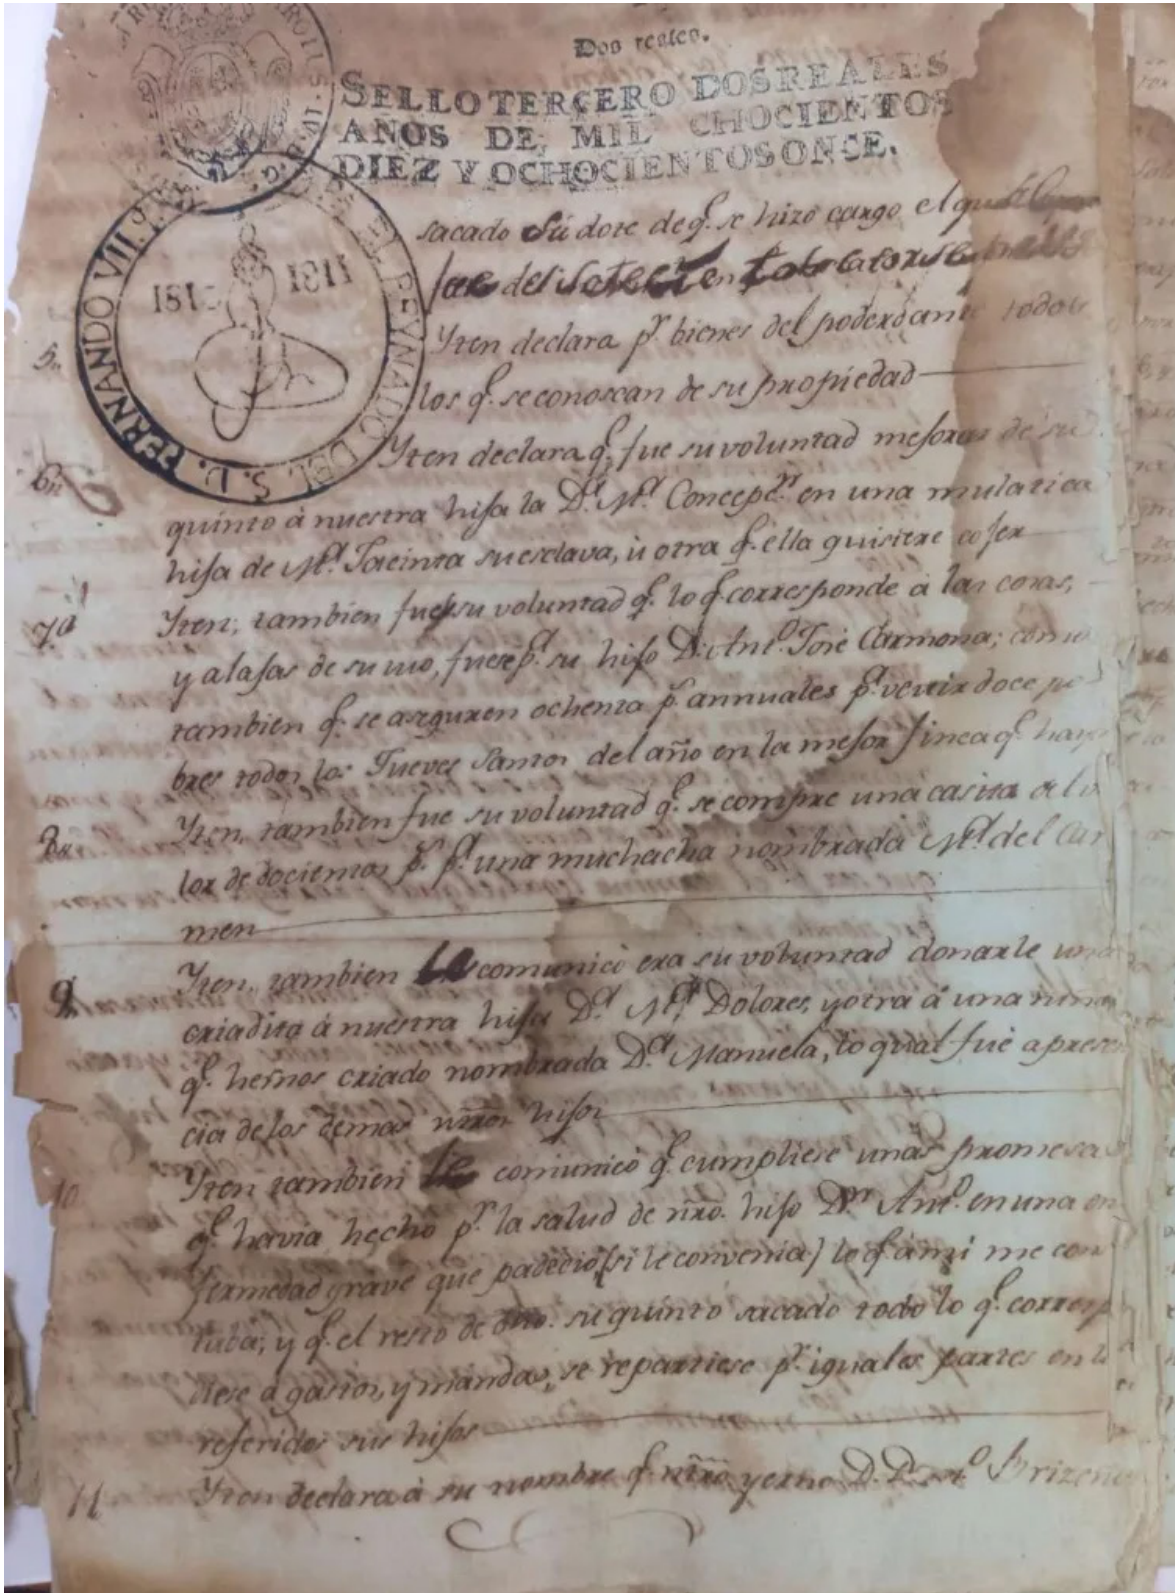 Dos reales.
SELLO TERCERO DOS REALES
AÑOS DE MIL OCHOCIENTOS
DIEZ Y OCHOCIENTOS ONCE.
FERNANDO VII
REYNADO DEL S. D.
1811
sacado su dote de q.e se hizo cargo el
del en
5.. Yten declara p.r bienes del poderdante todos
los q.e se conoscan de su propiedad
6.. Yten declara q.e fue su voluntad mejorar de su
quinto à nuestra hija la D.a M.a Concepc.n en una mulatica
hija de M.a Jacinta su esclava, ù otra q.e ella quisiere cojer
7.a Yten, tambien fue su voluntad q.e lo q.e corresponde à las cosas,
y alajas de su uso, fuese p.a su hijo D. Ant.o José Carmona; como
tambien q.e se aseguren ochenta p.s annuales p.a vestir doce po
bres todos los Jueves Santos del año en la mejor finca q.e haya
8.. Yten, tambien fue su voluntad q.e se compre una casita de va
lor de docientos p.s p.a una muchacha nombrada M.a del Car
men
9. Yten, tambien comunicò era su voluntad donarle una
criadita à nuestra hija D.a M.a Dolores, y otra à una niña
q.e hemos criado nombrada D.a Manuela, lo qual fuè a presen
cia de los demas ntros hijos
10. Yten tambien comunicò q.e cumpliese unas promesas
q.e havia hecho p.r la salud de ntro. hijo D.n Ant.o en una en
fermedad grave que padeciò (si le convenia) lo q.e à mi me cons
taba; y q.e el resto de dho. su quinto sacado todo lo q.e corresp
diese a gastos, y mandas, se repartiese p.r iguales partes en los
referidos sus hijos
11 Yten declara à su nombre q.e ntro yerno D. Brizeño